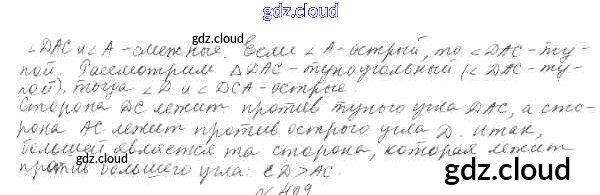 gdz.cloud
gdz.cloud
∠DAC и ∠A - смежные. Если ∠A - острый, то ∠DAC - ту-
пой. Рассмотрим △DAC - тупоугольный (∠DAC - ту-
пой), тогда ∠D и ∠DCA - острые.
Сторона DC лежит против тупого угла DAC, а сто-
рона AC лежит против острого угла D. Итак,
большей является та сторона, которая лежит
против большего угла: CD > AC.
gdz.cloud
gdz.cloud
№ 409